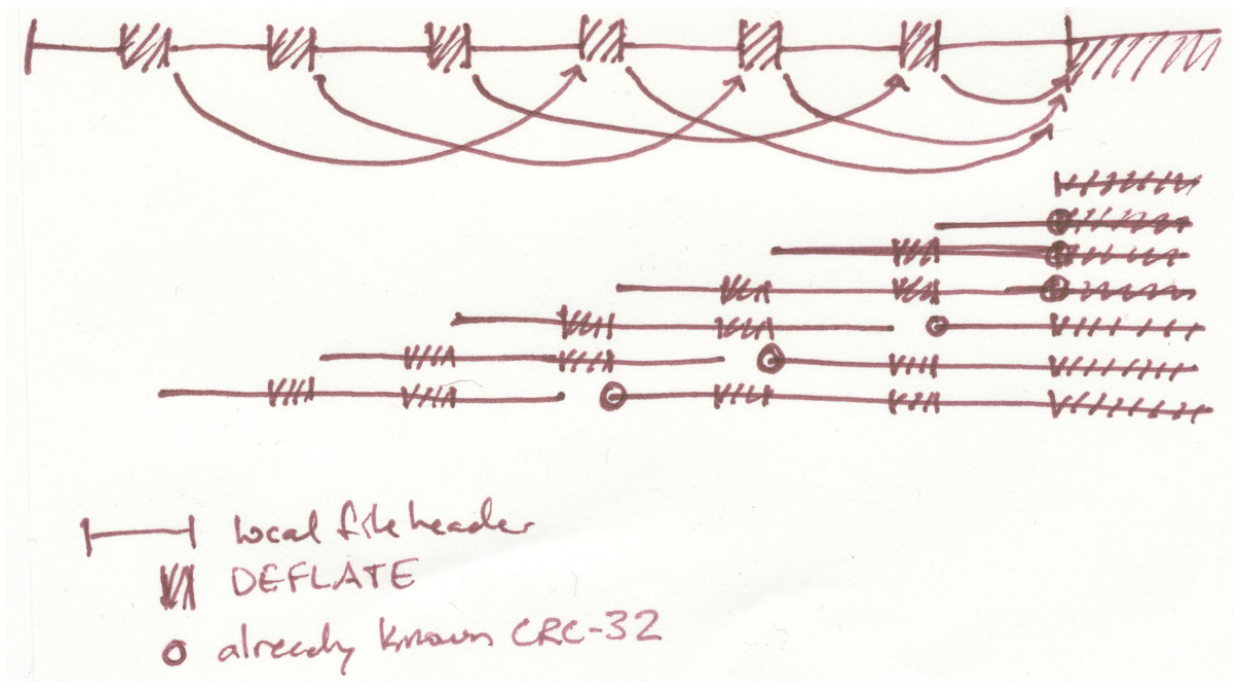 local file header
DEFLATE
already known CRC-32